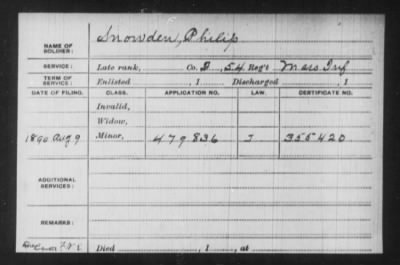 NAME OF SOLDIER: Snowden, Philip
SERVICE: Late rank, Co. , 54 Reg't Mass Inf
TERM OF SERVICE: Enlisted , 1 Discharged , 1
DATE OF FILING. CLASS. APPLICATION NO. LAW. CERTIFICATE NO.
Invalid,
Widow,
1890 Aug 9 Minor, 479836 J 355420
ADDITIONAL SERVICES:
REMARKS:
Died , 1 , at